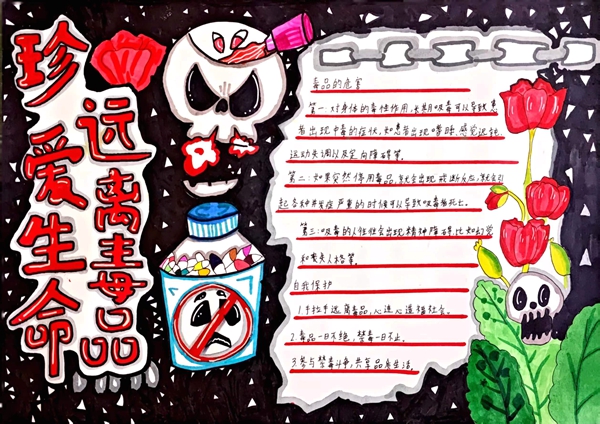 珍爱生命
远离毒品
毒品的危害
第一:对身体的毒性作用,长期吸毒可以导致患
者出现中毒的症状,如患者出现嗜睡,感觉迟钝
运动失调以及定向障碍等。
第二:如果突然停用毒品,就会出现戒断反应,就会引
起各种并发症严重的时候可以导致吸毒者死亡。
第三:吸毒的人往往会出现精神障碍,比如幻觉
和丧失人格等。
自我保护
1.手拉手远离毒品,心连心造福社会。
2.毒品一日不绝,禁毒一日不止。
3.参与禁毒斗争,共享品质生活。